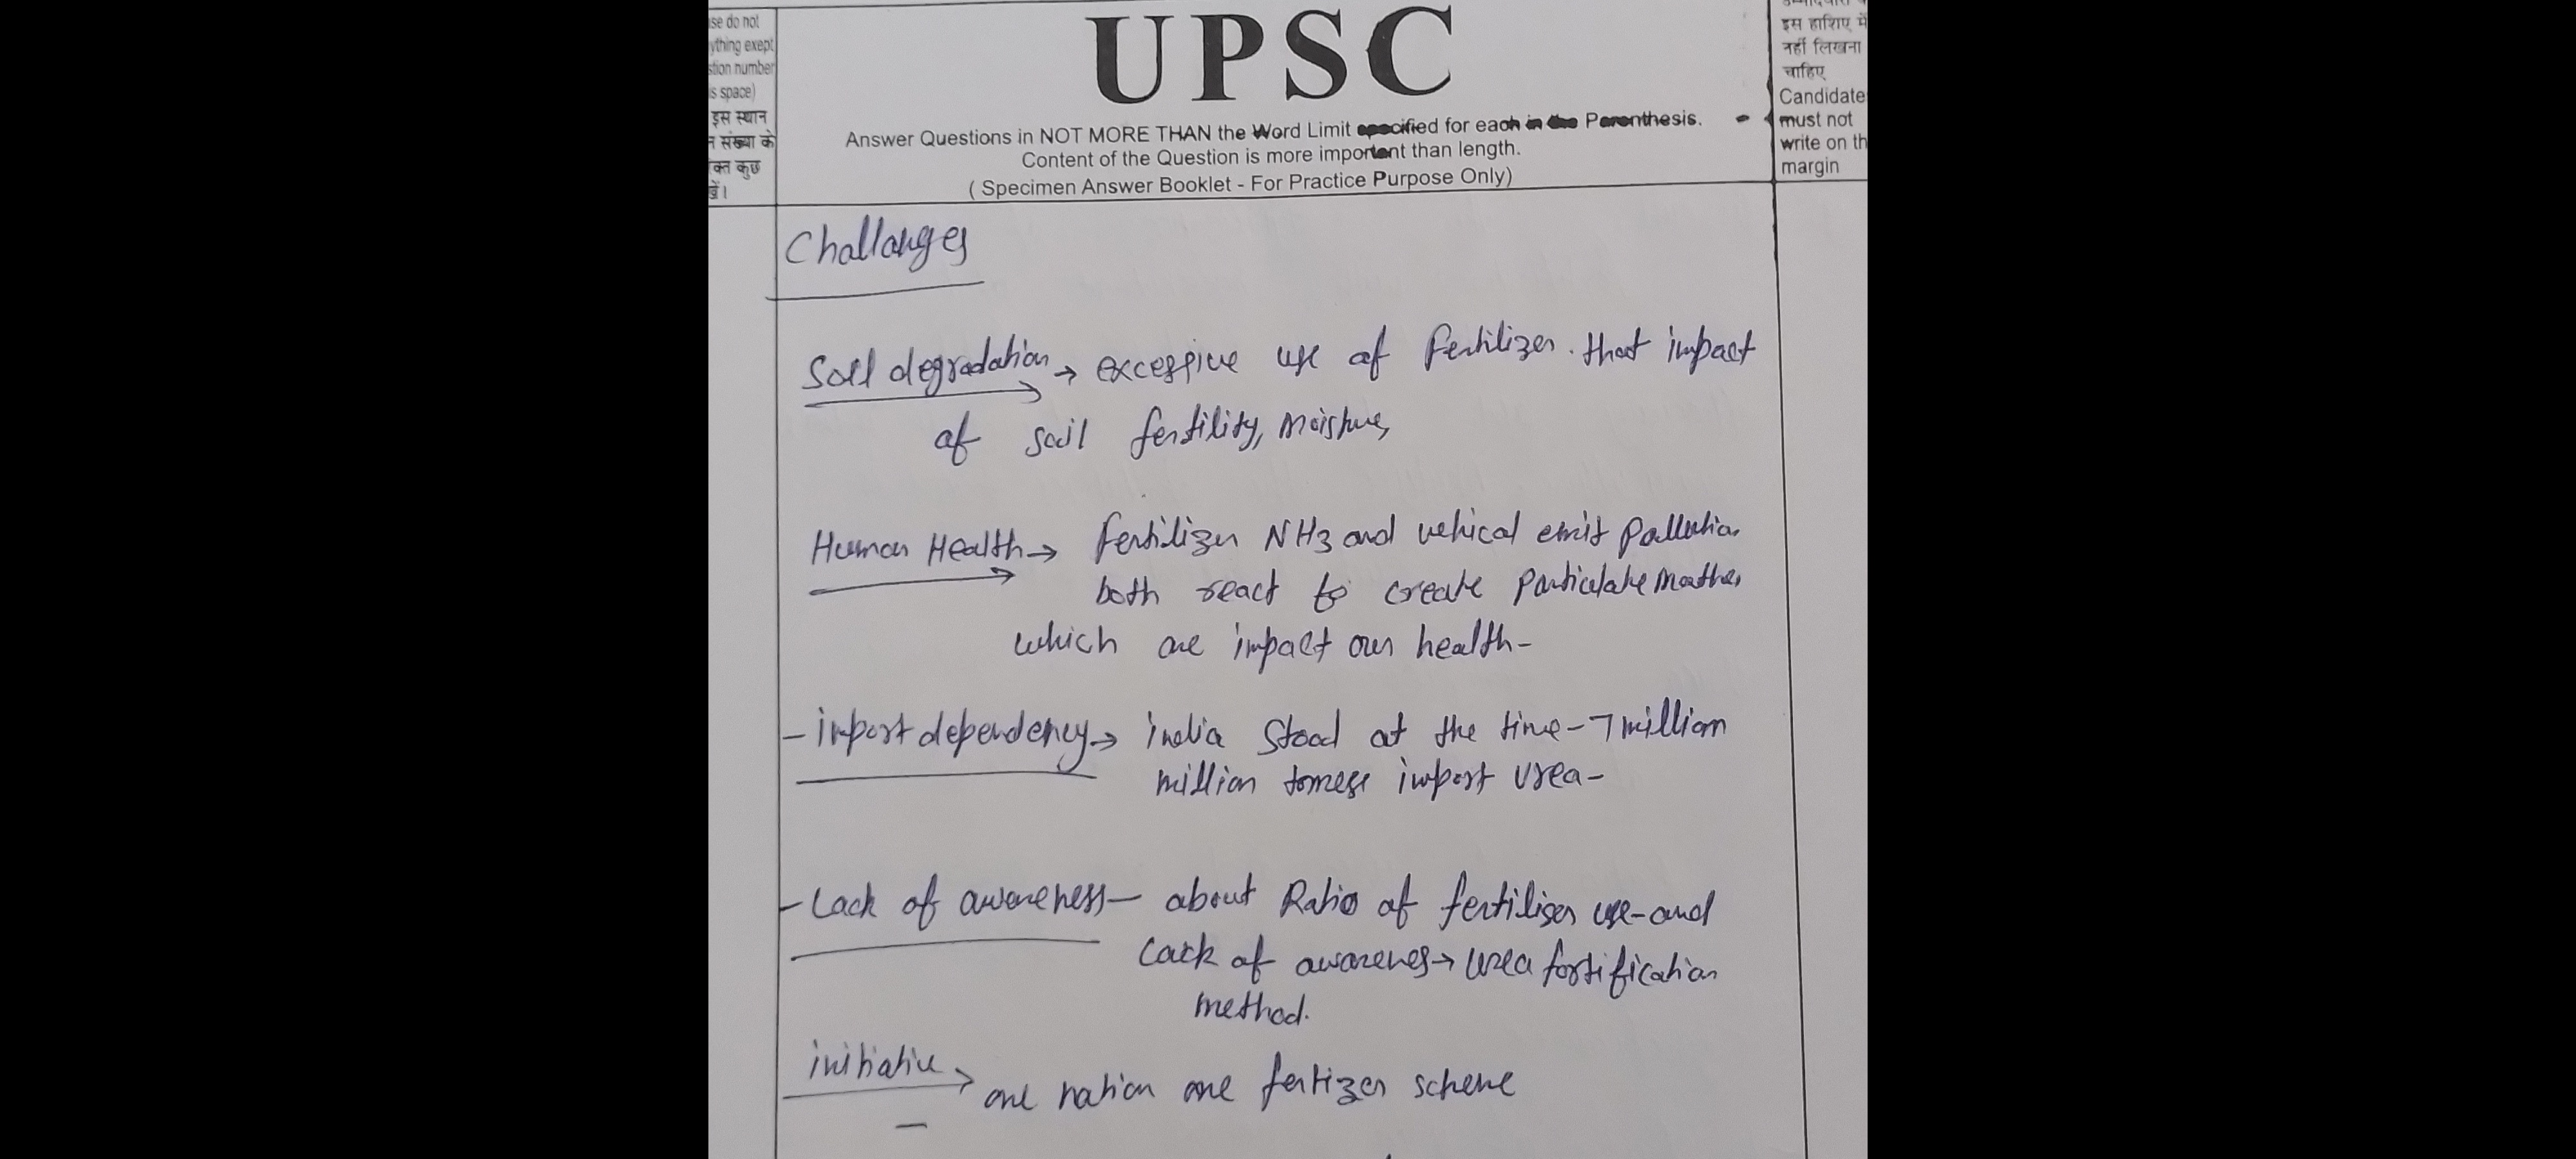 se do not
ything exept
stion number
s space)
इस स्थान
न संख्या के
क्त कुछ
खें।
UPSC
Answer Questions in NOT MORE THAN the Word Limit specified for each in the Parenthesis.
Content of the Question is more important than length.
( Specimen Answer Booklet - For Practice Purpose Only)
इस हाशिए में
नहीं लिखना
चाहिए
Candidate
must not
write on th
margin
Challanges
Soil degradation → excessive use of fertilizer. that impact
of soil fertility, moisture,
Human Health → fertilizer NH3 and vehical emit pollution
both react to create particulate matter
which are impact our health-
- import dependency → india stood at the time - 7 million
million tonnes import urea-
- Lack of awareness - about Ratio of fertiliser use - and
Lack of awarenes → urea fortification
method.
initiative → one nation one fertizer scheme